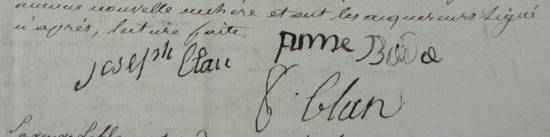 aucune nouvelle enchère et ont les acquereurs signé
n'après, lecture faite.
joseph Clau Anne Bode
P. Clan